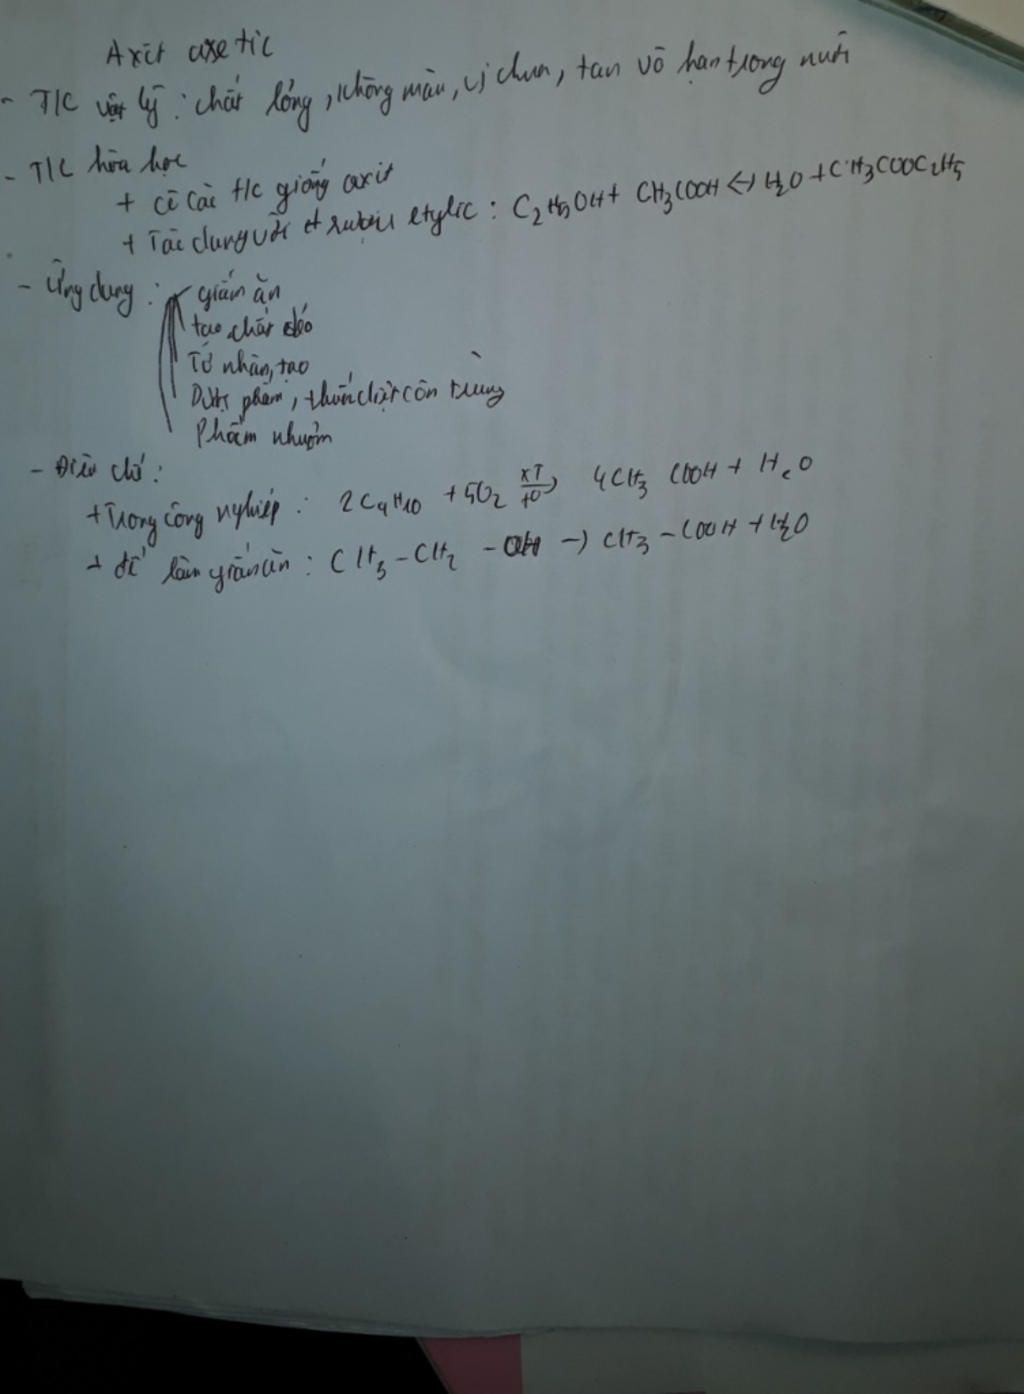 Axit axetic
- T/C vật lý : chất lỏng, không màu, vị chua, tan vô hạn trong nước
- T/C hóa học
+ có các t/c giống axit
+ Tác dụng với rượu etylic : C2H5OH + CH3COOH <-> H2O + CH3COOC2H5
- Ứng dụng :
giấm ăn
tạo chất dẻo
Tơ nhân tạo
Dược phẩm, thuốc diệt côn trùng
Phẩm nhuộm
- Điều chế :
+ Trong công nghiệp : 2C4H10 + 5O2 xt t0 -> 4CH3COOH + H2O
+ để làm giấm ăn : CH3 - CH2 - OH -> CH3 - COOH + H2O